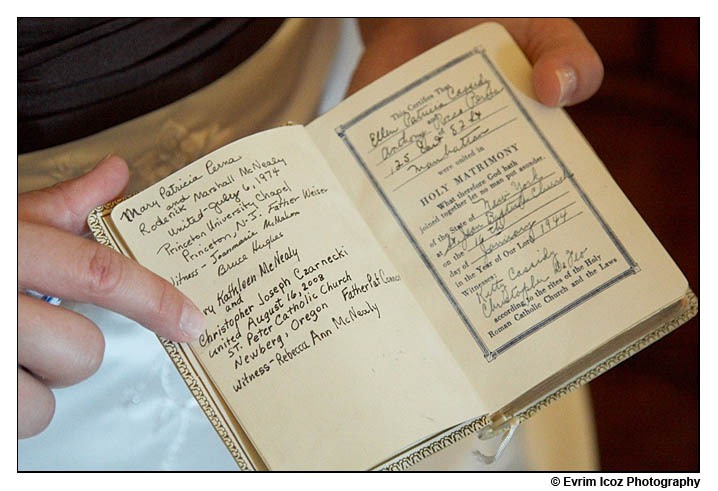 Mary Patricia Perna
and
Roderik Marshall McNealy
United July 6, 1974
Princeton University Chapel
Princeton, N.J. Father Weiser
Witness - Joanmarie McMahon
Bruce Hughes
Kathleen McNealy
and
Christopher Joseph Czarnecki
united August 16, 2008
St. Peter Catholic Church
Newberg, Oregon Father Pat
Witness - Rebecca Ann McNealy
This Certifies That
Ellen Patricia Cassidy
and
Anthony Perna
of
Manhattan
were united in
HOLY MATRIMONY
What therefore God hath
joined together let no man put asunder.
of the State of New York
at St. Jean Baptiste Church
on the 16
day of January
in the Year of Our Lord 1944
Witnesses:
Kitty Cassidy
Christopher De Feo
according to the rites of the Holy
Roman Catholic Church and the Laws
© Evrim Icoz Photography